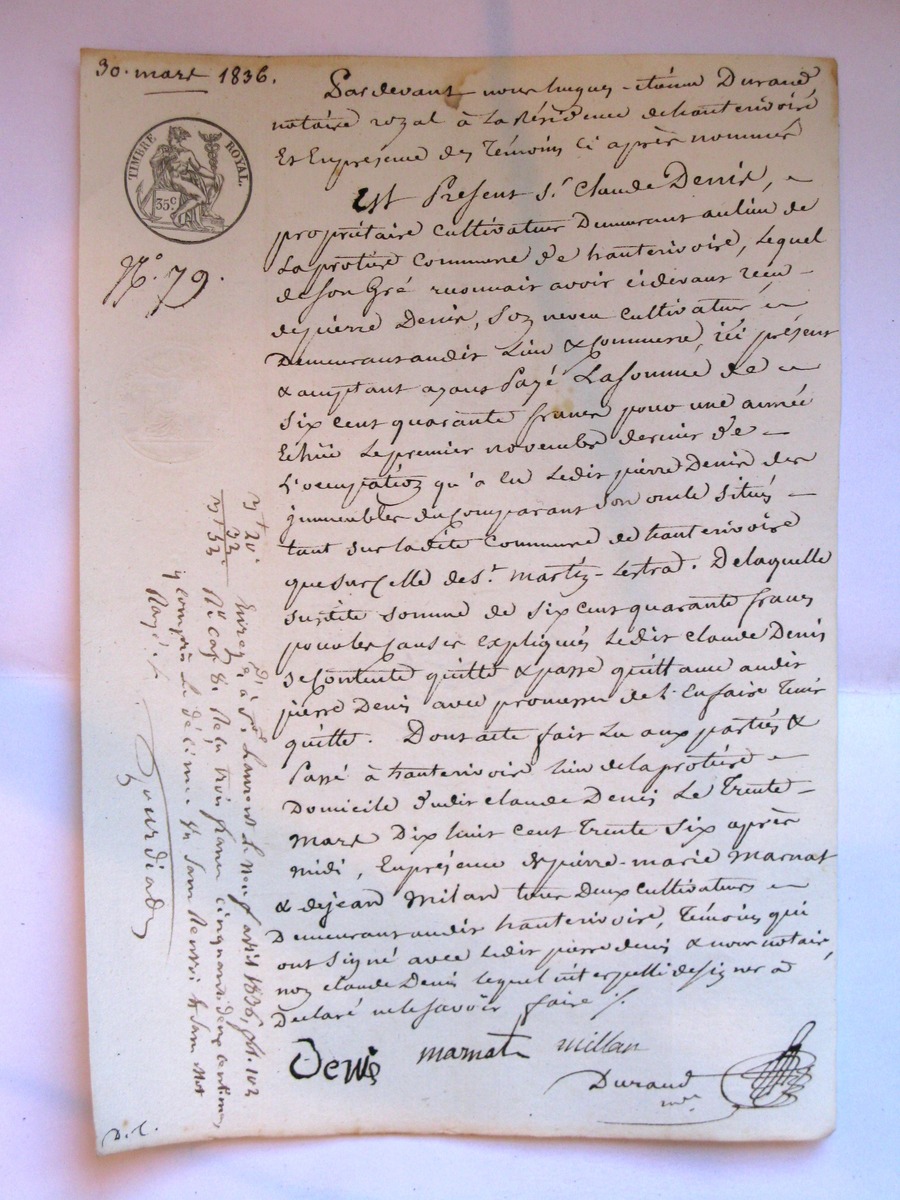 30. mars 1836.
TIMBRE ROYAL.
35 c
N.° 79.
Pardevant nous hugues-étiene Durand
notaire royal à La Résidence de hauterivoire
Et En presence des Témoins ci après nommés
Est Présent S.r Claude Denis,
propriétaire cultivateur Demeurant au lieu de
La protière Commune de hauterivoire, Lequel
de son Gré reconnait avoir ci devant reçu
de pierre Denis, son neveu cultivateur
Demeurant audit Lieu & Commune, ici présent
& acceptant ayant Payé La somme de
Six cent quarante francs pour une année
Echüe Le premier novembre dernier de
L'occupation qu'a eu Ledit pierre Denis des
immeubles du Comparant Son oncle situés
tant sur la dite Commune de hauterivoire
que sur Celle de S.t Martin-Lestra. De laquelle
susdite somme de Six Cent quarante francs
pour les Causes expliquées Ledit Claude Denis
se Contente quitte & passe quittance audit
pierre Denis avec promesse de L'En faire Tenir
quitte. Dont acte fait Lu aux parties &
Passé à hauterivoire lieu de la protière
Domicile dudit Claude Denis Le Trente
Mars Dix huit cent Trente Six après
midi, En présence de pierre-marie Marnat
& de jean Milan tous Deux cultivateurs
Demeurant audit hauterivoire, Témoins qui
ont Signé avec Ledit pierre denis & nous notaire,
non Claude Denis Lequel interpellé de signer a
Declaré ne le savoir faire ./.
Denis marnat millan
Durand
n.re
3f 20c
32
3f 52
Enreg. à S.t Laurent Le neuf avril 1836, f.° 102
R.° Cas 8. Reçu trois francs cinquante deux centimes
y compris Le décime
Gourdiat
D. C.